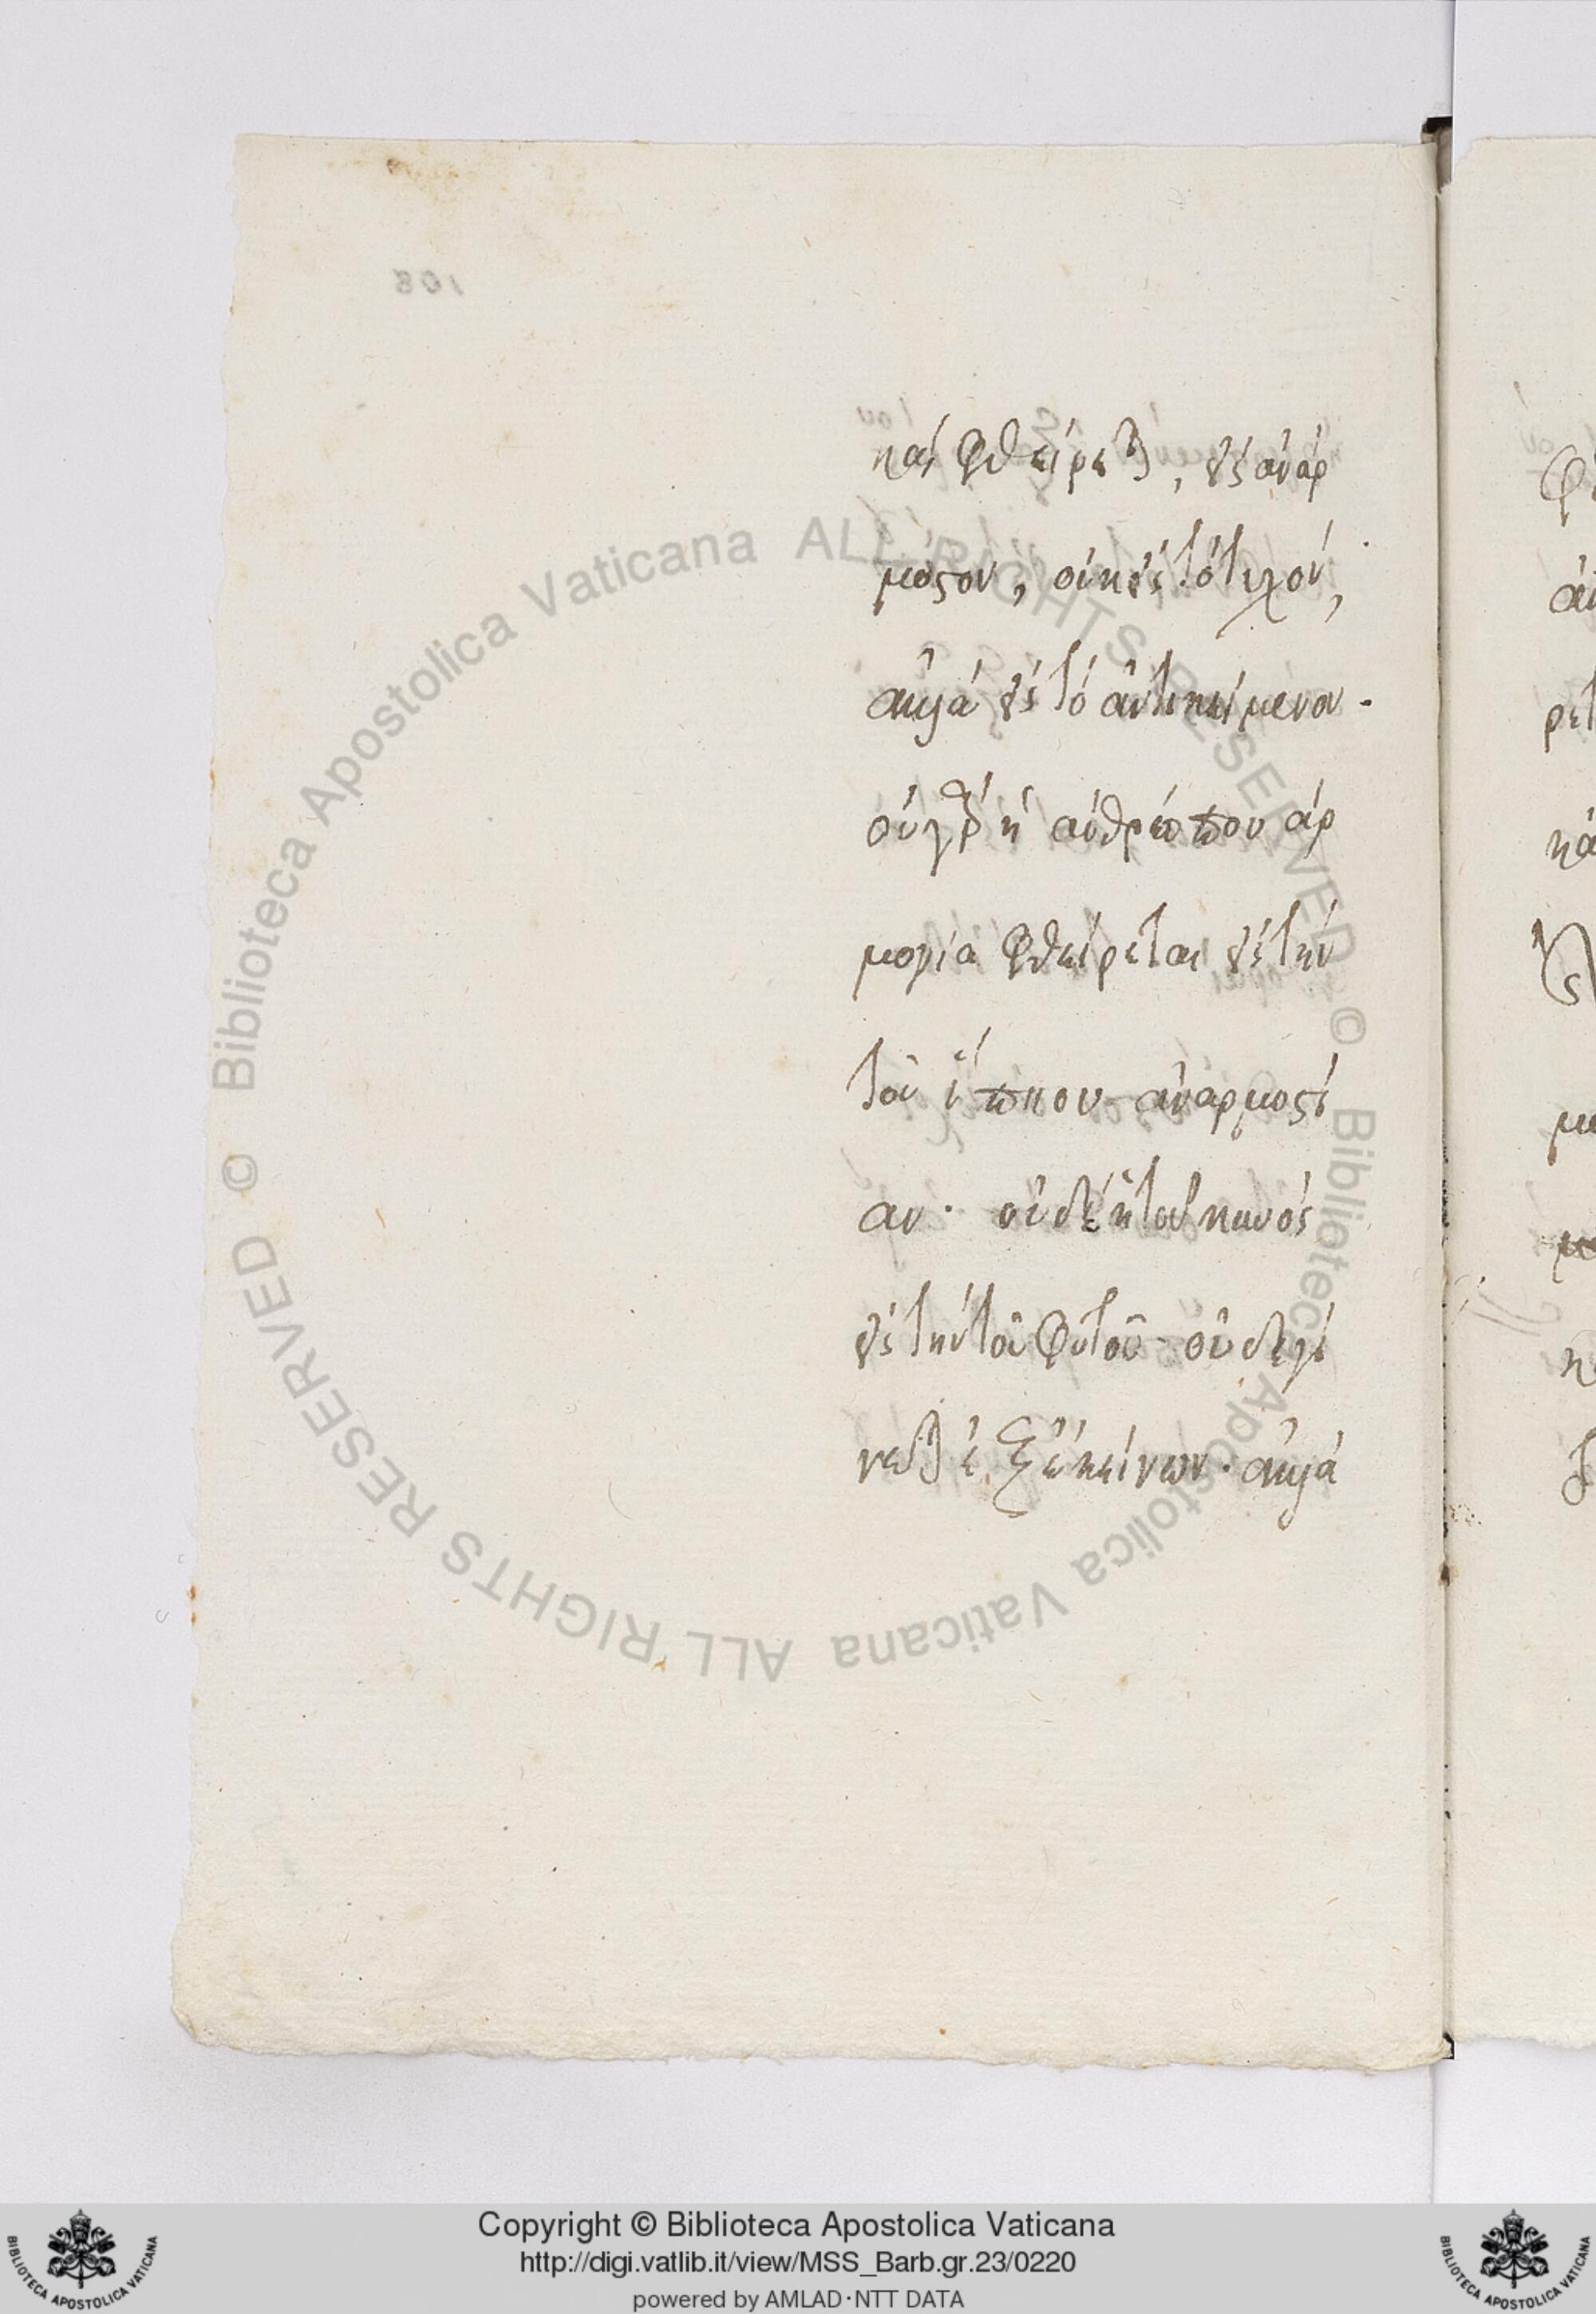 καὶ φθείρεται, εἰς ἀνάρ
μοστον, οὐκ εἰς τὸ τυχόν,
ἀλλὰ εἰς τὸ ἀντικείμενον.
οὐ γὰρ ἡ ἀνθρώπου ἁρ
μονία φθείρεται εἰς τὴν
τοῦ ἵππου ἀναρμοστί
αν. οὐδὲ ἡ τοῦ κυνὸς
εἰς τὴν τοῦ φυτοῦ οὐδὲ γί
νεται ἐξ ἐκείνων. ἀλλὰ
108
© Biblioteca Apostolica Vaticana ALL RIGHTS RESERVED © Biblioteca Apostolica Vaticana ALL RIGHTS RESERVED
Copyright © Biblioteca Apostolica Vaticana
http://digi.vatlib.it/view/MSS_Barb.gr.23/0220
powered by AMLAD·NTT DATA
BIBLIOTECA APOSTOLICA VATICANA
BIBLIOTECA APOSTOLICA VATICANA